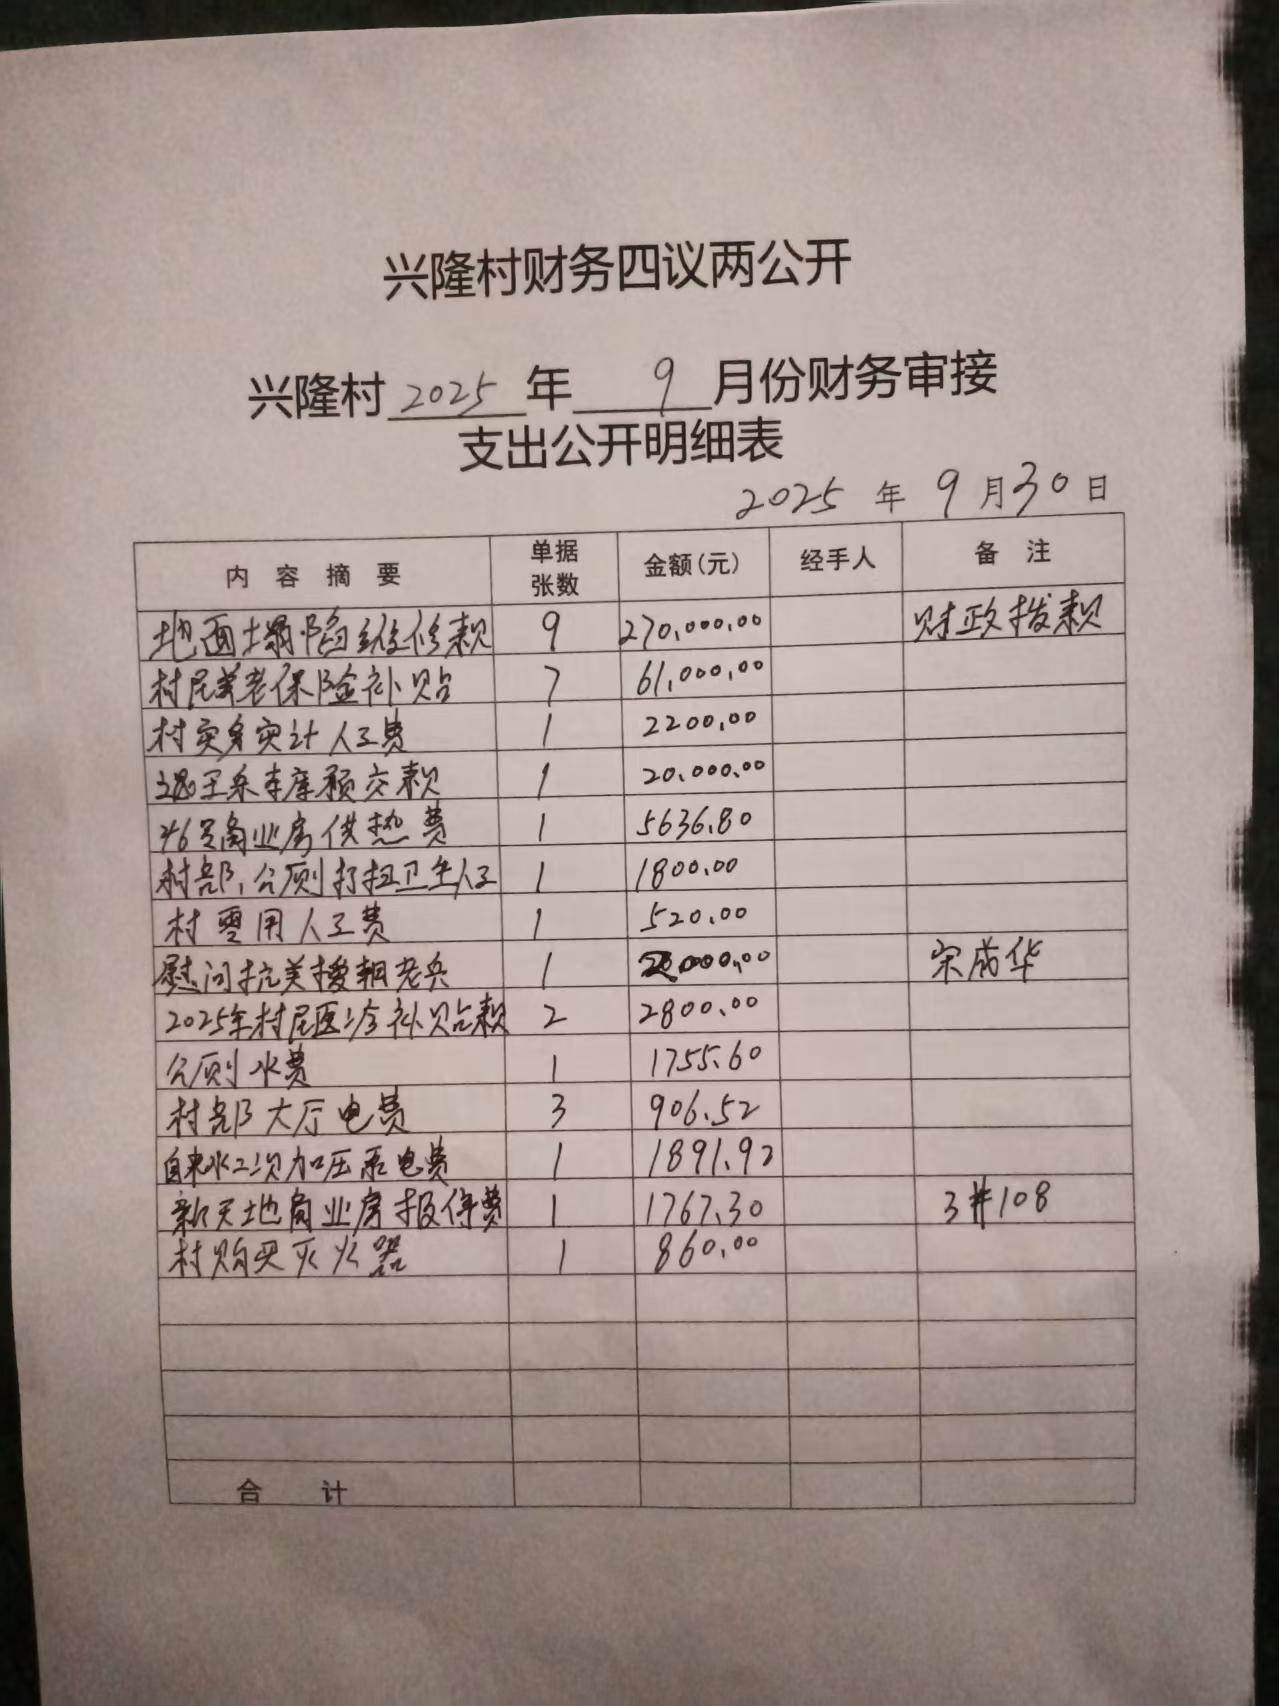 兴隆村财务四议两公开
兴隆村 2025 年 9 月份财务审接
支出公开明细表
2025 年 9 月 30 日
内容摘要 单据张数 金额(元) 经手人 备注
地面塌陷维修款 9 270,000.00 财政拨款
村民养老保险补贴 7 61,000.00
村实计人工费 1 2200.00
车库预交款 1 20,000.00
46号商业房供热费 1 5636.80
村部,公厕打扫卫生人工 1 1800.00
村零用人工费 1 520.00
慰问抗美援朝老兵 1 宋成华
2025年村民医疹补贴款 2 2800.00
公厕水费 1 1755.60
村部大厅电费 3 906.52
自来水二次加压泵电费 1 1891.92
新天地商业房报停费 1 1767.30 3#108
村购买灭火器 1 860.00
合计